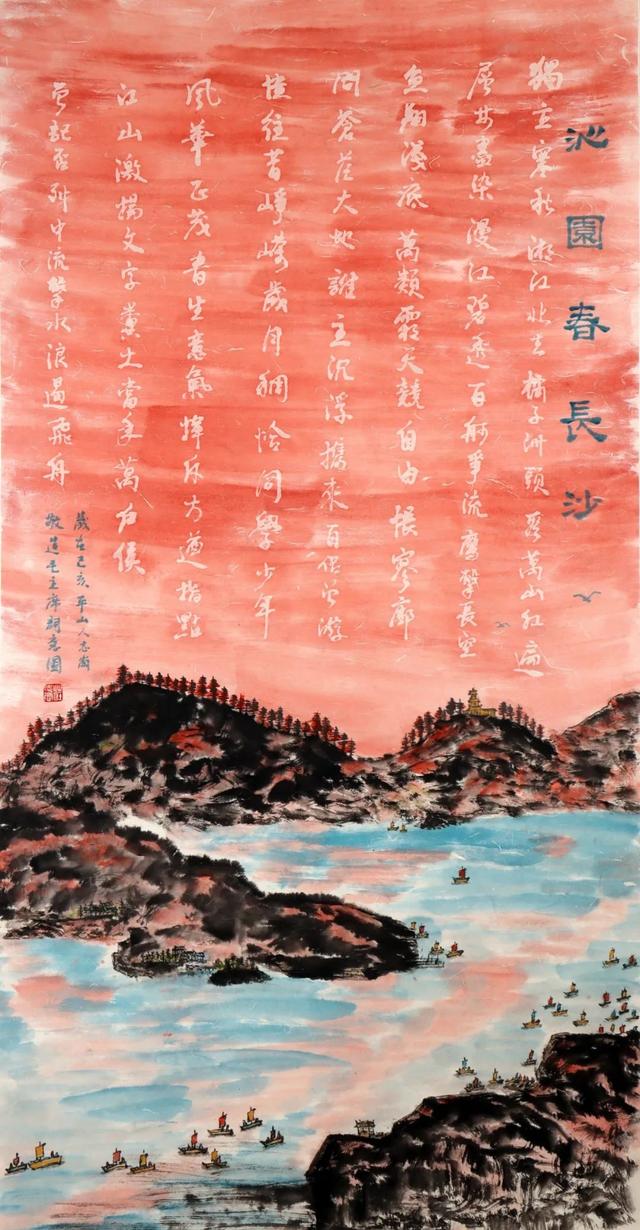 沁園春長沙
獨立寒秋湘江北去橘子洲頭看萬山紅遍
層林盡染漫江碧透百舸爭流鷹擊長空
魚翔淺底萬類霜天競自由悵寥廓
問蒼茫大地誰主沉浮攜來百侶曾游
憶往昔崢嶸歲月稠恰同學少年
風華正茂書生意氣揮斥方遒指點
江山激揚文字糞土當年萬戶侯
曾記否到中流擊水浪遏飛舟
歲在己亥平山人志
敬造毛主席詞意圖